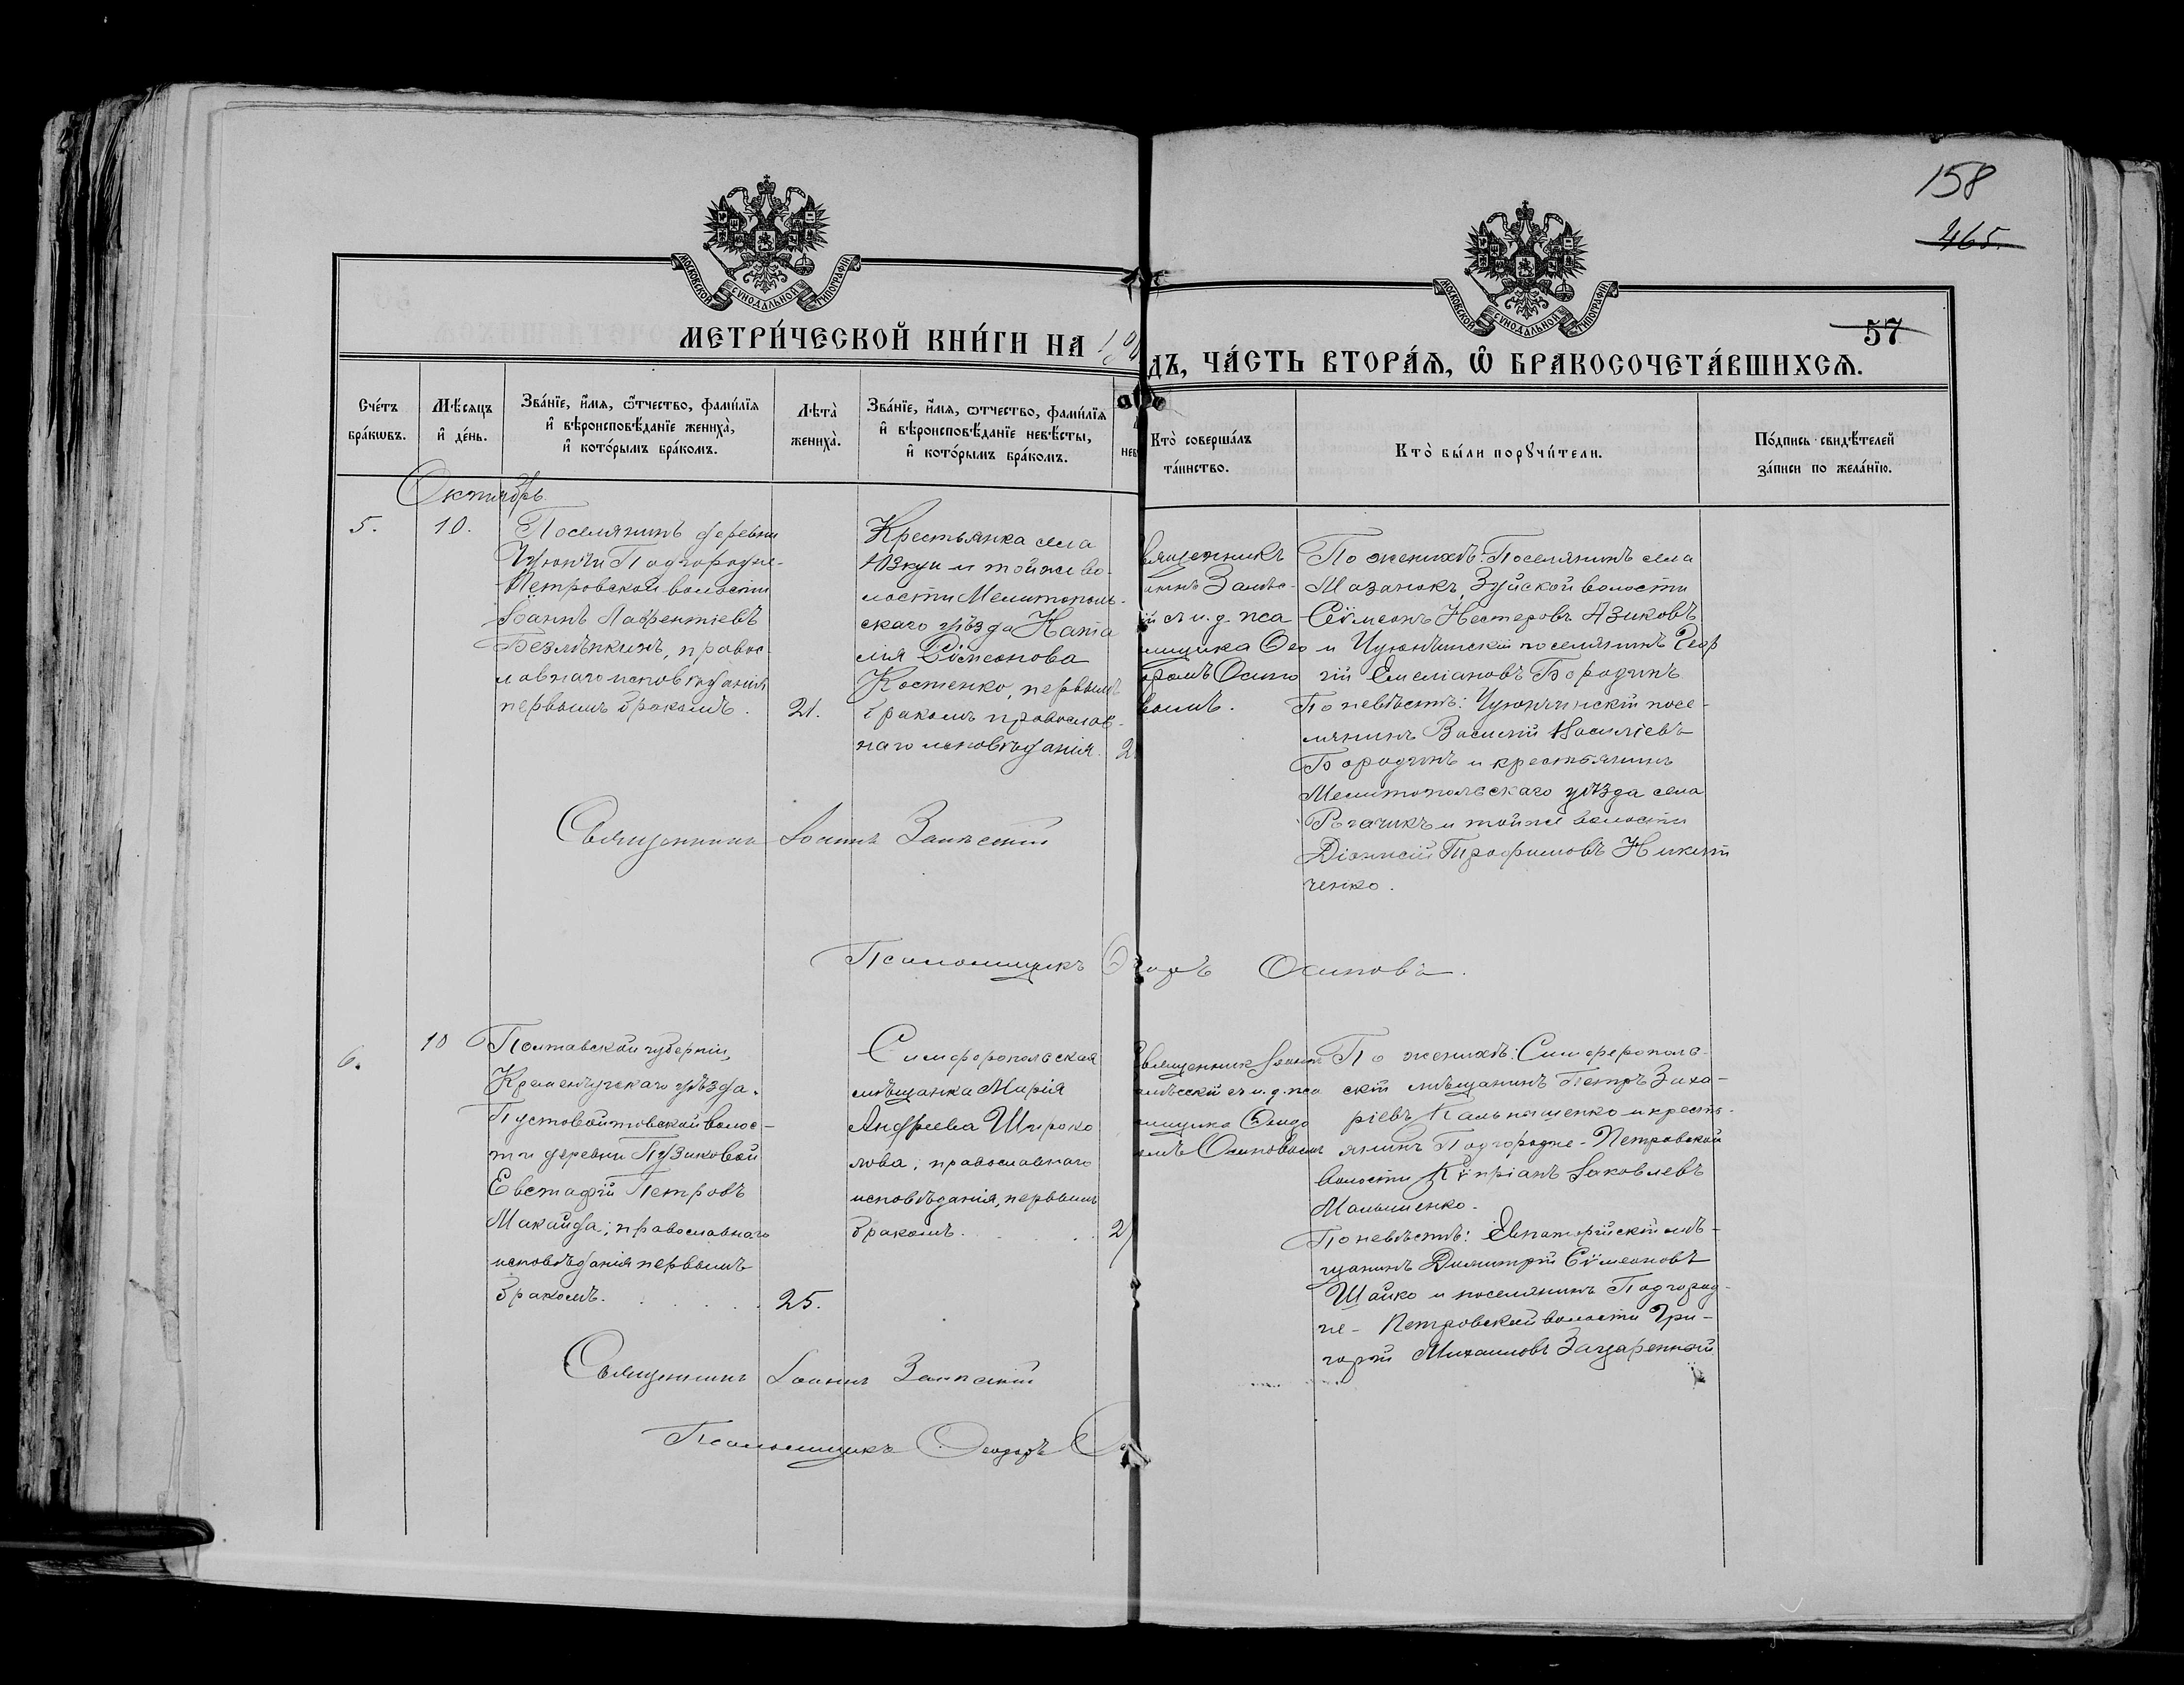 158
465.
57
МОСКОВСКОЙ СѴНОДАЛЬНОЙ ТИПОГРАФІИ
МОСКОВСКОЙ СѴНОДАЛЬНОЙ ТИПОГРАФІИ
МЕТРИ́ЧЕСКОЙ КНИ́ГИ НА
ДЪ, ЧА́СТЬ ВТОРА́Я, Ѡ҆ БРАКОСОЧЕТА́ВШИХСѦ.
Сче́тъ
бра́кѡвъ.
Мѣ́сяцъ
и҆ де́нь.
Зва́нїе, и҆́мѧ, ѻ҆́тчество, фами́лїѧ
и҆ вѣроисповѣ́данїе женихà,
и҆ кото́рымъ бра́комъ.
Лѣ́та
женихà.
Зва́нїе, и҆́мѧ, ѻ҆́тчество, фами́лїѧ
и҆ вѣроисповѣ́данїе невѣ́сты,
и҆ кото́рымъ бра́комъ.
нев
Ктò соверша́лъ
та́инство.
Ктò бы́ли порꙋчи́тели.
По́дпись свидѣ́телей
за́писи по жела́нїю.
Октябрь
5.
10.
Поселянинъ деревни
Чуюнчи Подгородне-
Петровской волости
Іоаннъ Лаврентіевъ
Безлѣпкинъ, правос
лавнаго исповѣданія
первымъ бракомъ.
21.
Крестьянка села
и тойже во
лости Мелитополь-
скаго уѣзда Ната
лія Сѵмеонова
Костенко, первымъ
бракомъ православ-
наго исповѣданія.
2
вященникъ
аннъ Залѣс-
ій съ и. д. пса
мщика Ѳео
оромъ Осипо
вымъ.
По женихѣ: Поселянинъ села
Мазанокъ, Зуйской волости
Сѵмеонъ Нестеровъ Азиковъ
и Чуюнчинскій поселянинъ Геор
гій Емеліановъ Бородинъ
По невѣстѣ: Чуюнчинскій посе-
лянинъ Василій Василіевъ
Бородинъ и крестьянинъ
Мелитопольскаго уѣзда села
Рогачикъ и тойже волости
Діонисій Трофимовъ Никит
ченко.
Священникъ Іоаннъ Залѣсскій
Псаломщикъ Ѳеодоръ Осиповъ.
6.
10
Полтавской губерніи,
Кременчугскаго уѣзда.
Пустовойтовской волос-
ти деревни Пузиковой
Евстафій Петровъ
Макайда; православнаго
исповѣданія первымъ
бракомъ.
25.
Симферопольская
мѣщанка Марія
Андреева Широко
лова; православнаго
исповѣданія, первымъ
бракомъ.
2
вященник Іоаннъ
алѣсскій съ и. д. пса
мщика Ѳеодо
омъ Осиповымъ
По женихѣ: Симферополь-
скій мѣщанинъ Петръ Заха-
ріевъ Кальнишенко и кресть-
янинъ Подгородне-Петровской
волости Кѵпріанъ Іаковлевъ
Малышенко.
По невѣстѣ: Евпаторійскій мѣ-
щанинъ Димитрій Сѵмеоновъ
Шайко и поселянинъ Подгород-
не-Петровской волости Гри-
горій Михаиловъ
Священникъ Іоаннъ Залѣсскій
Псаломщикъ Ѳеодоръ